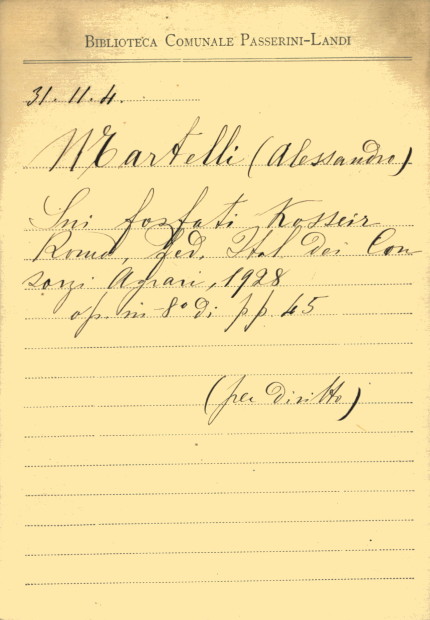 BIBLIOTECA COMUNALE PASSERINI-LANDI
31.11.4.
Martelli (Alessandro)
Sui fosfati Kosseir
Roma, Fed. Ital dei Con
sorzi Agrari, 1928
op. in 8° di pp 45
(per diritto)